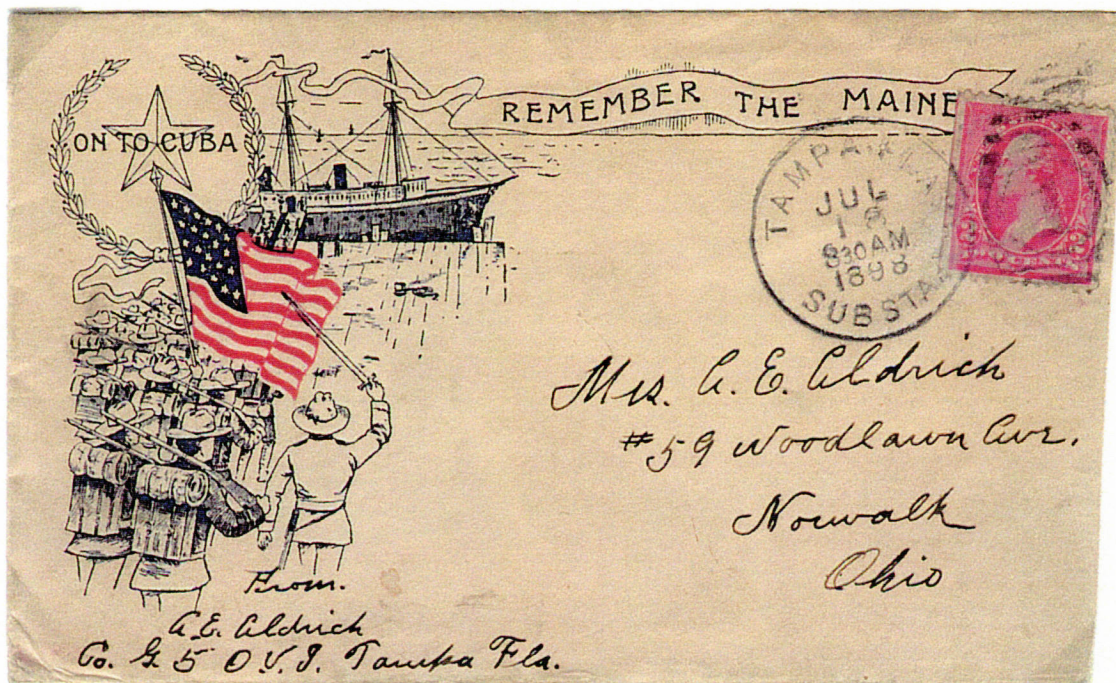 ON TO CUBA
REMEMBER THE MAINE
TAMPA,
JUL
18
830AM
1898
SUBSTA.
2 CENTS 2
Mrs. A. E. Aldrich
#59 Woodlawn Ave.
Norwalk
Ohio
From.
A. E. Aldrich
Co. G. 5 O. V. I. Tampa Fla.